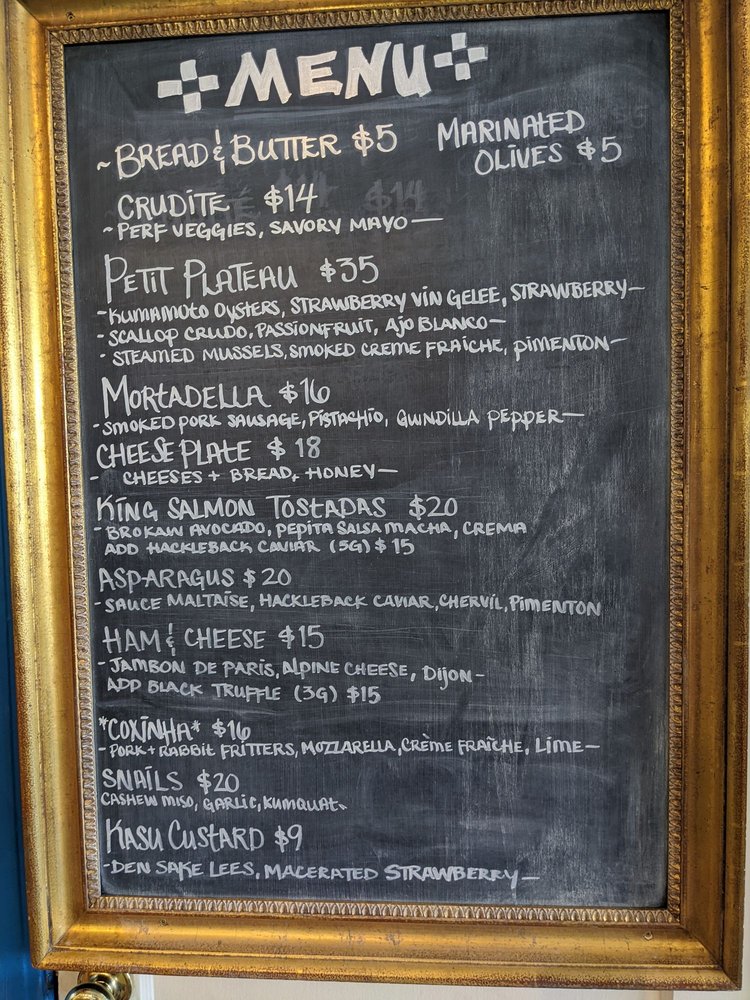 MENU
~BREAD & BUTTER $5
MARINATED
OLIVES $5
CRUDITE $14
~PERF VEGGIES, SAVORY MAYO—
PETIT PLATEAU $35
-KUMAMOTO OYSTERS, STRAWBERRY VIN GELEE, STRAWBERRY—
-SCALLOP CRUDO, PASSIONFRUIT, AJO BLANCO—
-STEAMED MUSSELS, SMOKED CREME FRAICHE, PIMENTON—
MORTADELLA $16
-SMOKED PORK SAUSAGE, PISTACHIO, GWINDILLA PEPPER—
CHEESE PLATE $18
- CHEESES + BREAD, HONEY—
KING SALMON TOSTADAS $20
-BROKAW AVOCADO, PEPITA SALSA MACHA, CREMA
ADD HACKLEBACK CAVIAR (5G) $15
ASPARAGUS $20
-SAUCE MALTAISE, HACKLEBACK CAVIAR, CHERVIL, PIMENTON
HAM & CHEESE $15
-JAMBON DE PARIS, ALPINE CHEESE, DIJON-
ADD BLACK TRUFFLE (3G) $15
*COXINHA* $16
-PORK + RABBIT FRITTERS, MOZZARELLA, CRÈME FRAÎCHE, LIME—
SNAILS $20
CASHEW MISO, GARLIC, KUMQUAT~
KASU CUSTARD $9
-DEN SAKE LEES, MACERATED STRAWBERRY—